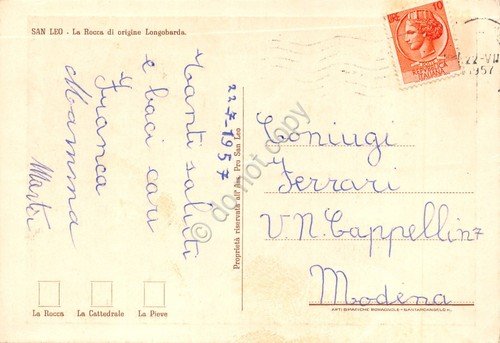 SAN LEO - La Rocca di origine Longobarda.
22-7-1957
Tanti saluti
e baci cari
Franca
Mamma
LIRE 10
ITALIANA
22-VII
1957
Coniugi
Ferrari
V. N. Cappellin 7
Modena
Proprietà riservata all'Ass. Pro San Leo
La Rocca
La Cattedrale
La Pieve
© do not copy